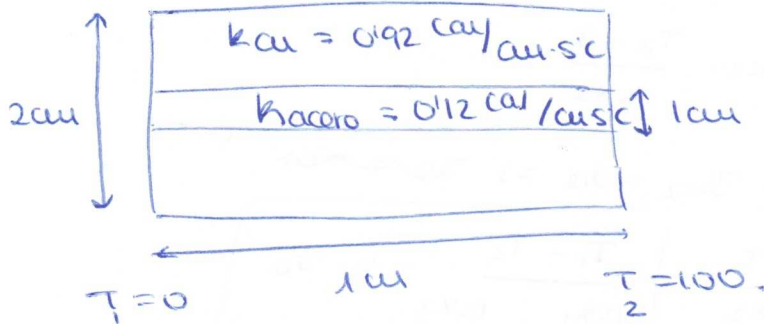 kcu = 0'92 cal/cm·s·c
2cm
kacero = 0'12 cal/cm s c
1cm
1m
T1 = 0
T2 = 100.